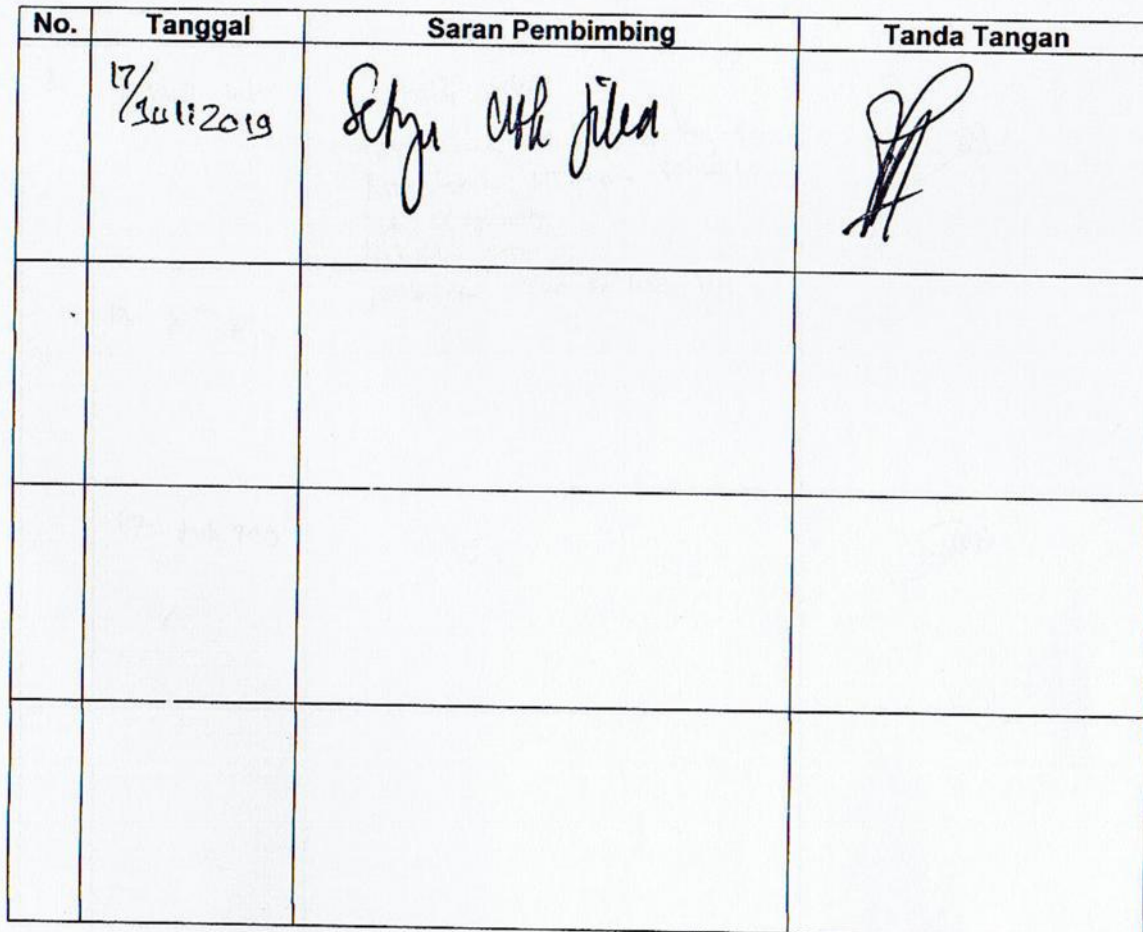 No. Tanggal Saran Pembimbing Tanda Tangan
17/Juli 2019 Setuju utk